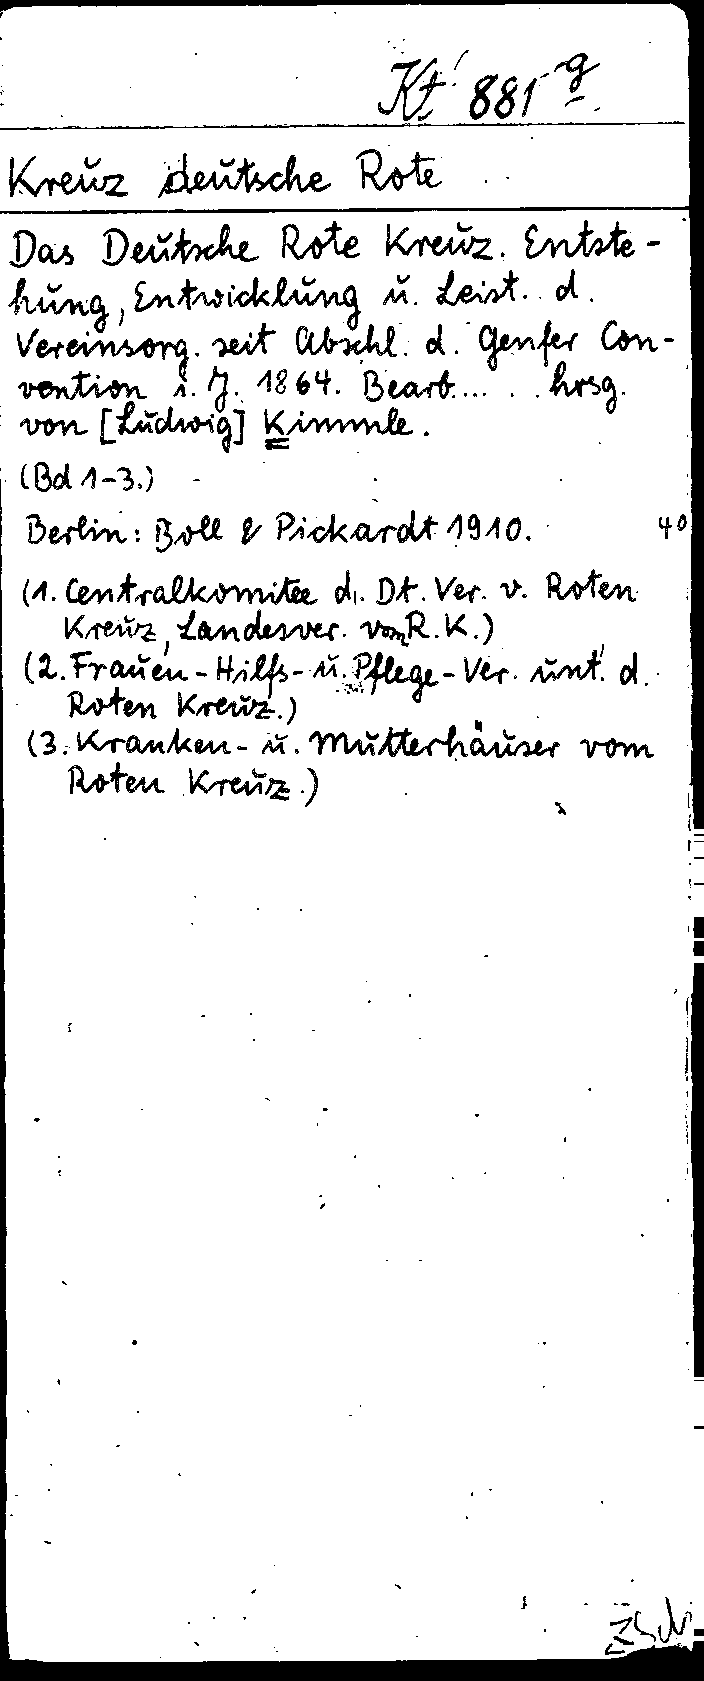 Kt 881 g
Kreuz deutsche Rote
Das Deutsche Rote Kreuz. Entste-
hung, Entwicklung u. Leist. d.
Vereinsorg. seit Abschl. d. Genfer Con-
vention i. J. 1864. Bearb.... . hrsg.
von [Ludwig] Kimmle.
(Bd 1-3.)
Berlin: Boll & Pickardt 1910. 4°
(1. Centralkomitee d. Dt. Ver. v. Roten
Kreuz, Landesver. vom R. K.)
(2. Frauen-Hilfs- u. Pflege-Ver. unt. d.
Roten Kreuz.)
(3. Kranken- u. Mutterhäuser vom
Roten Kreuz.)